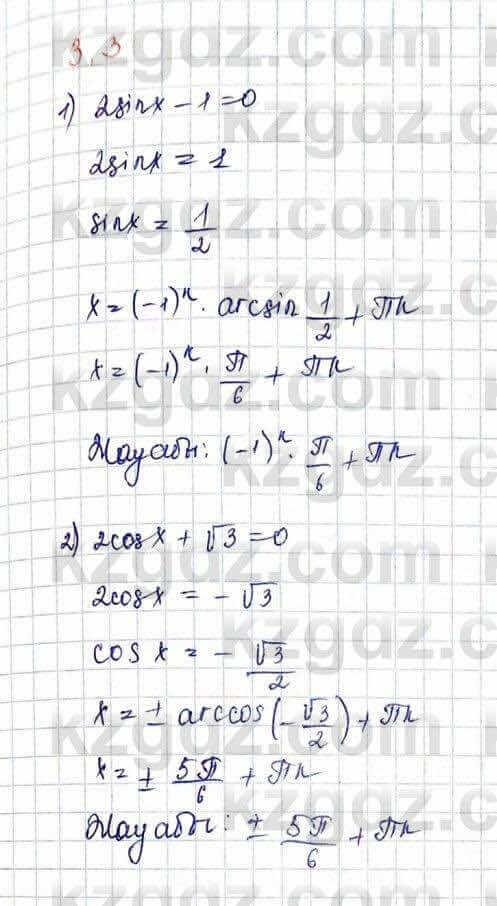 3.3
1) 2sinx - 1 = 0
2sinx = 1
sinx = 1/2
x = (-1)ⁿ · arcsin 1/2 + πn
x = (-1)ⁿ · π/6 + πn
Жауабы: (-1)ⁿ · π/6 + πn
2) 2cosx + √3 = 0
2cosx = - √3
cos x = - √3/2
x = ± arccos(-√3/2) + πn
x = ± 5π/6 + πn
Жауабы: ± 5π/6 + πn
kzgdz.com